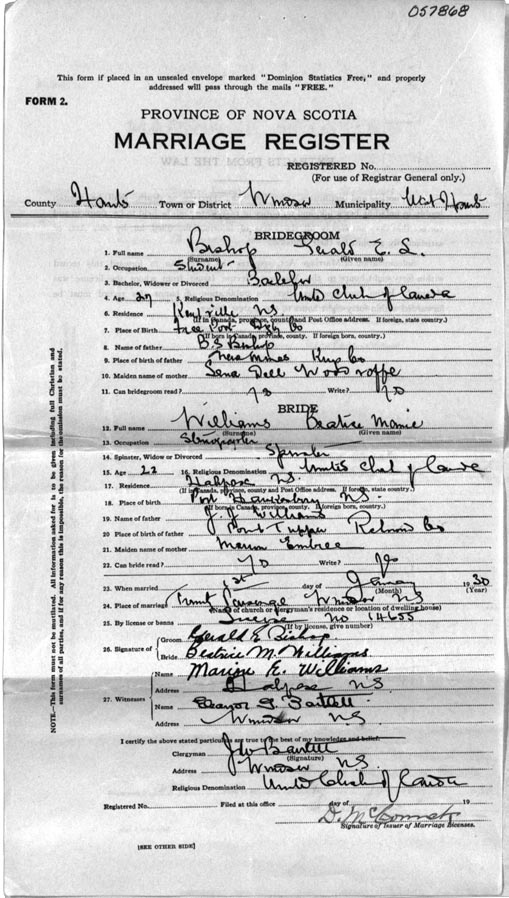 057868
This form if placed in an unsealed envelope marked "Dominion Statistics Free," and properly
addressed will pass through the mails "FREE."
FORM 2.
PROVINCE OF NOVA SCOTIA
MARRIAGE REGISTER
REGISTERED No.
(For use of Registrar General only.)
County Hants Town or District Windsor Municipality West Hants
BRIDEGROOM
1. Full name Bishop Gerald E. L.
(Surname) (Given name)
2. Occupation Student
3. Bachelor, Widower or Divorced Bachelor
4. Age 27 5. Religious Denomination United Church of Canada
6. Residence Kentville NS.
(If in Canada, province, county and Post Office address. If foreign, state country.)
7. Place of Birth Free Port Digby Co
(If born in Canada, province, county. If foreign born, country.)
8. Name of father B S Bishop
9. Place of birth of father Kings Co
10. Maiden name of mother Lena Dell
11. Can bridegroom read? Yes Write? Yes
BRIDE
12. Full name Williams Beatrice Mamie
(Surname) (Given name)
13. Occupation Stenographer
14. Spinster, Widow or Divorced Spinster
15. Age 22 16. Religious Denomination United Church of Canada
17. Residence Halifax NS.
(If in Canada, province, county and Post Office address. If foreign, state country.)
18. Place of birth Port Hawkesbury NS.
(If born in Canada, province, county. If foreign born, country.)
19. Name of father J. Williams
20. Place of birth of father Point Tupper Richmond Co
21. Maiden name of mother Marion Embree
22. Can bride read? Yes Write? Yes
23. When married 1st day of January 1930
(Month) (Year)
24. Place of marriage Parsonage Windsor NS
(Name of church or clergyman's residence or location of dwelling house)
25. By license or banns License no 14655
(If by license, give number)
26. Signature of
Groom Gerald E Bishop
Bride Beatrice M. Williams
27. Witnesses
Name Marion E. Williams
Address Halifax NS
Name Eleanor Bartlett
Address Windsor NS.
I certify the above stated particulars are true to the best of my knowledge and belief.
Clergyman
(Signature)
Address Windsor NS.
Religious Denomination United Church of Canada
Registered No. Filed at this office day of 19
Signature of Issuer of Marriage Licenses.
[SEE OTHER SIDE]
NOTE.—This form must not be mutilated. All information asked for is to be given including full Christian and
surnames of all parties, and if for any reason this is impossible, the reason for the omission must be stated.